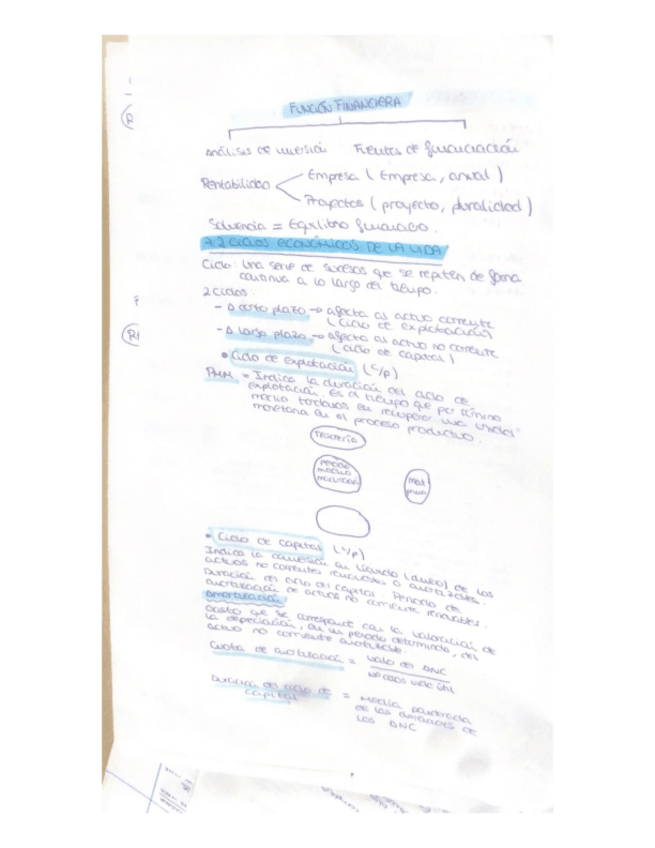 FUNCIÓN FINANCIERA
Análisis de inversión Fuentes de financiación
Rentabilidad Empresa (Empresa, anual)
Proyectos (proyecto, pluralidad)
Solvencia = Equilibrio financiero.
7.2 CICLOS ECONÓMICOS DE LA VIDA
Ciclo: Una serie de sucesos que se repiten de forma
continua a lo largo del tiempo.
2 ciclos:
- A corto plazo → afecta al activo corriente
(Ciclo de explotación)
- A largo plazo → afecta al activo no corriente
(ciclo de capital)
• Ciclo de explotación (c/p)
PMM = Indica la duración del ciclo de
explotación. Es el tiempo que por término
medio tardamos en recuperar una unidad
monetaria en el proceso productivo.
Tesorería
Periodo
medio
maduración
Mat
• Ciclo de capital (l/p)
Indica la conversión en líquido (dinero) de los
activos no corrientes renovables o amortizables.
Duración del ciclo del capital: Periodo de
amortización de activos no corriente renovables.
Amortización
Gasto que se corresponde con la valoración de
la depreciación, en un periodo determinado, del
activo no corriente amortizable.
Cuota de amortización = Valo del ANC
Nº años vida útil
Duración del ciclo de = Media ponderada
capital de las duraciones de
los ANC